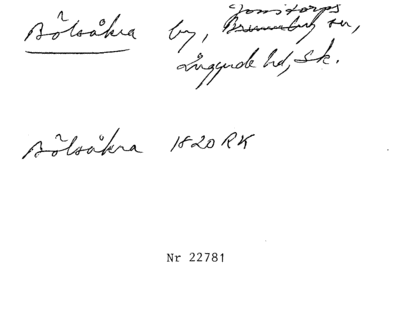 Jonstorps
Bölsåkra by, Brunnby sn,
Luggude hd, Sk.
Bölsåkra 1820 RK
Nr 22781